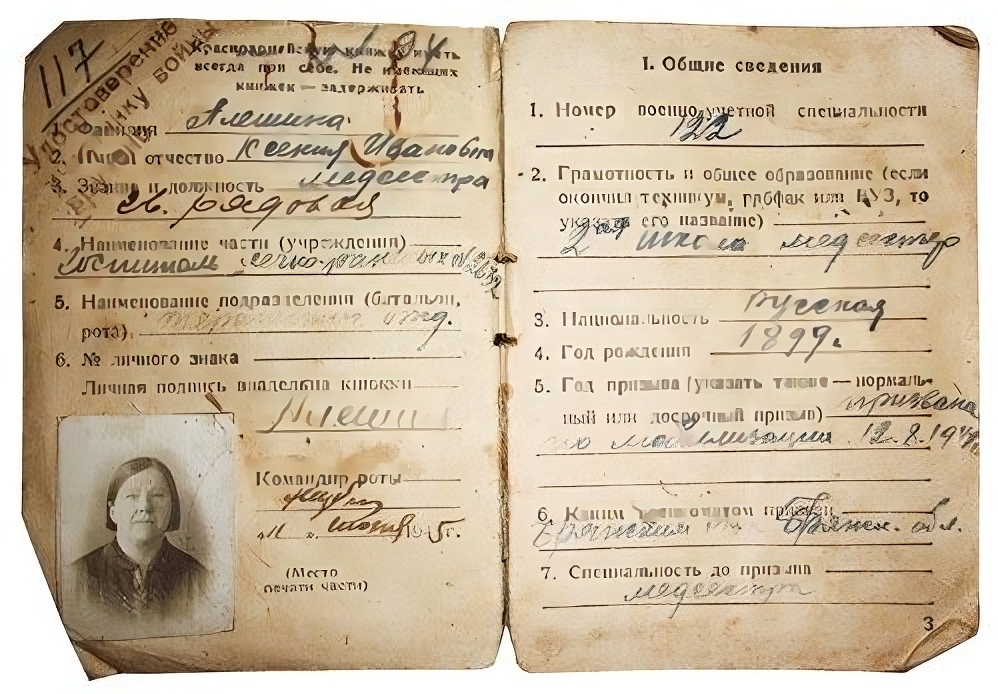 117
Удостоверение
войны
Красноармейскую книжку иметь
всегда при себе. Не имеющих
книжек — задерживать
1. Фамилия Алешина
2. Имя и отчество Ксения Ивановна
3. Звание и должность медсестра
рядовая
4. Наименование части (учреждения)
Госпиталь
5. Наименование подразделения (батальон,
рота)
6. № личного знака
Личная подпись владельца книжки
Алешина
Командир роты
"11" 1945г.
(Место
печати части)
I. Общие сведения
1. Номер военно-учетной специальности
122
2. Грамотность и общее образование (если
окончил техникум, рабфак или ВУЗ, то
указать его название)
школа медсестер
3. Национальность Русская
4. Год рождения 1899г.
5. Год призыва (указать также — нормаль-
ный или досрочный призыв) призвана
по мобилизации 12.8.1941
6. Каким военкоматом призван
Брянским Брянск. обл.
7. Специальность до призыва
медсестра
3